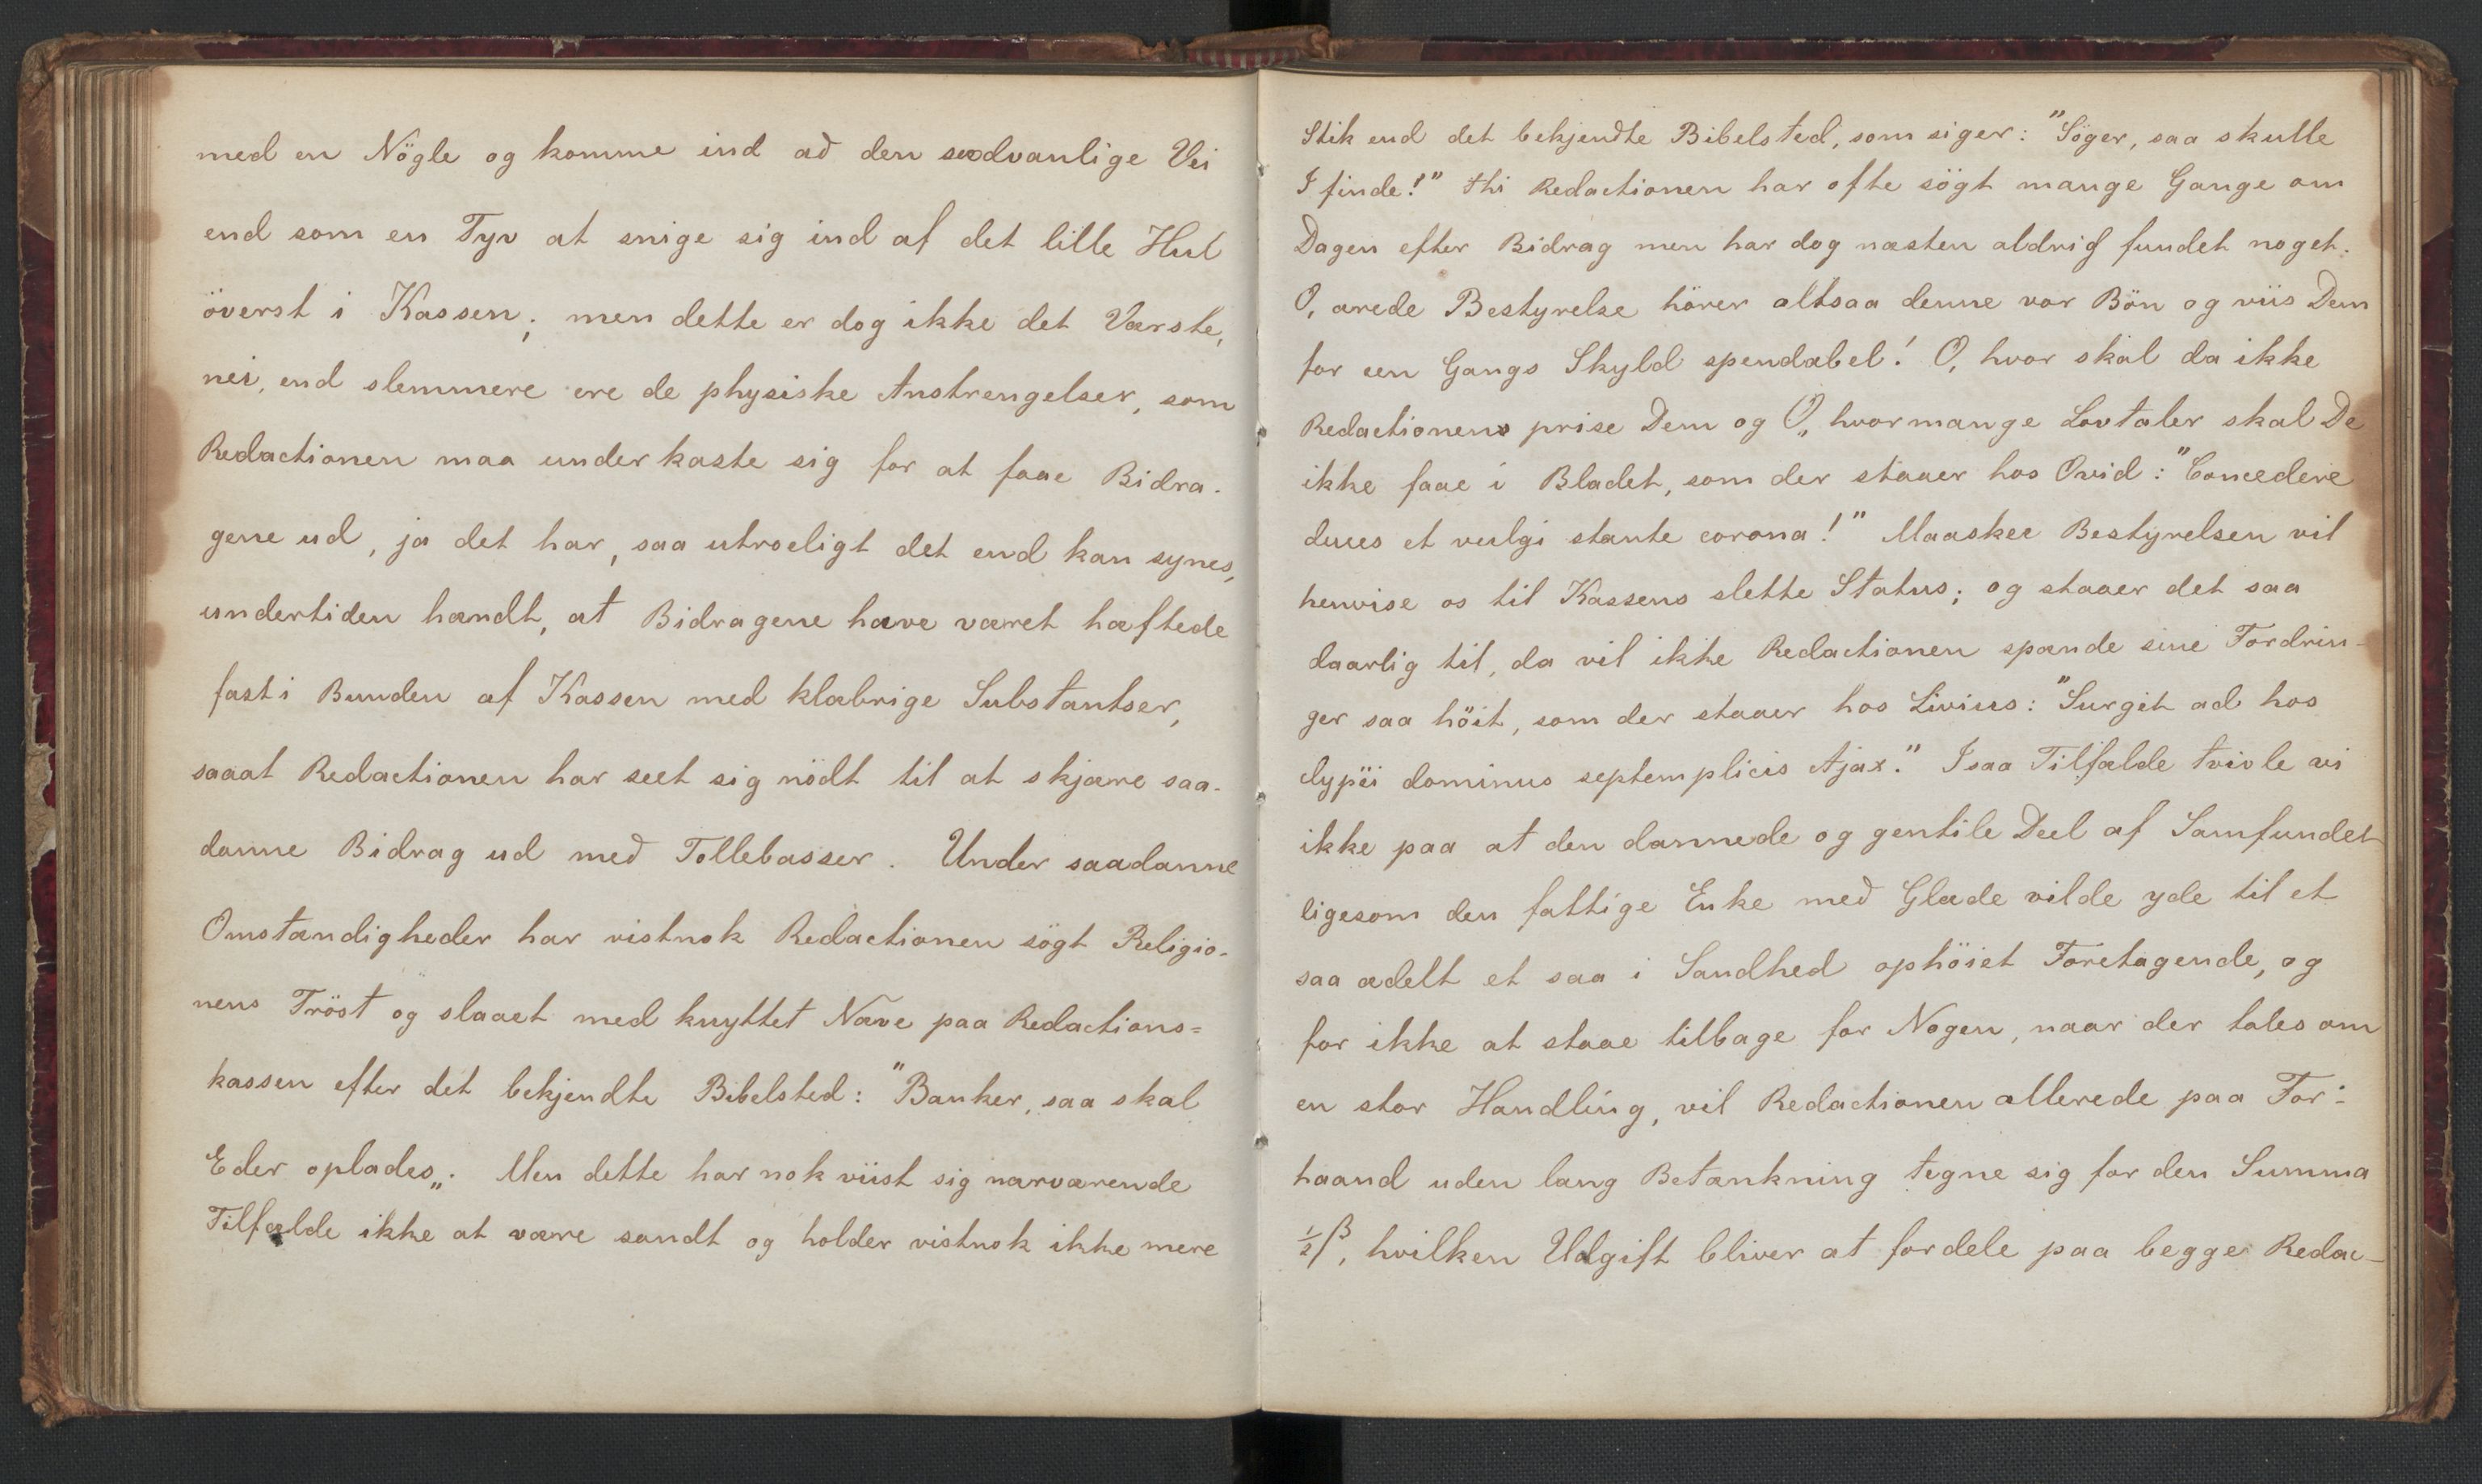 med en Nögle og komme ind ad den sædvanlige Vei
end som en Tyv at snige sig ind af det lille Hul
överst i Kassen; men dette er dog ikke det Værste,
nei, end slemmere ere de physiske Anstrengelser, som
Redactionen maa underkaste sig for at faae Bidra-
gene ud, ja det har, saa utroeligt det end kan synes,
undertiden hændt, at Bidragene have været hæftede
fast i Bunden af Kassen med klæbrige Substantser,
saaat Redactionen har seet sig nödt til at skjære saa-
danne Bidrag ud med Tollebasser. Under saadanne
Omstændigheder har vistnok Redactionen sögt Religio-
nens Tröst og slaaet med knyttet Næve paa Redactions=
kassen efter det bekjendte Bibelsted: "Banker, saa skal
Eder oplades„. Men dette har nok viist sig nærværende
Tilfælde ikke at være sandt og holder vistnok ikke mere
Stik end det bekjendte Bibelsted, som siger: "Söger, saa skulle
I finde!" thi Redactionen har ofte sögt mange Gange om
Dagen efter Bidrag men har dog næsten aldrig fundet noget.
O, ærede Bestyrelse hörer altsaa denne vor Bön og viis Dem
for een Gangs Skyld spendabel! O, hvor skal da ikke
Redactionens prise Dem og O„ hvormange Lovtaler skal De
ikke faae i Bladet, som der staaer hos Ovid: "Concedere
duces et vulgi stante corona!" Maaskee Bestyrelsen vil
henvise os til Kassens slette Status; og staaer det saa
daarlig til, da vil ikke Redactionen spænde sine Fordrin-
ger saa höit, som der staaer hos Livius: "Surgit ad hos
clypëi dominus septemplicis Ajax." I saa Tilfælde tvivle vi
ikke paa at den dannede og gentile Deel af Samfundet
ligesom den fattige Enke med Glæde vilde yde til et
saa ædelt et saa i Sandhed ophöiet Foretagende, og
for ikke at staae tilbage for Nogen, naar der tales om
en stor Handling, vil Redactionen allerede paa For-
haand uden lang Betænkning tegne sig for den Summa
½ β, hvilken Udgift bliver at fordele paa begge Redac-